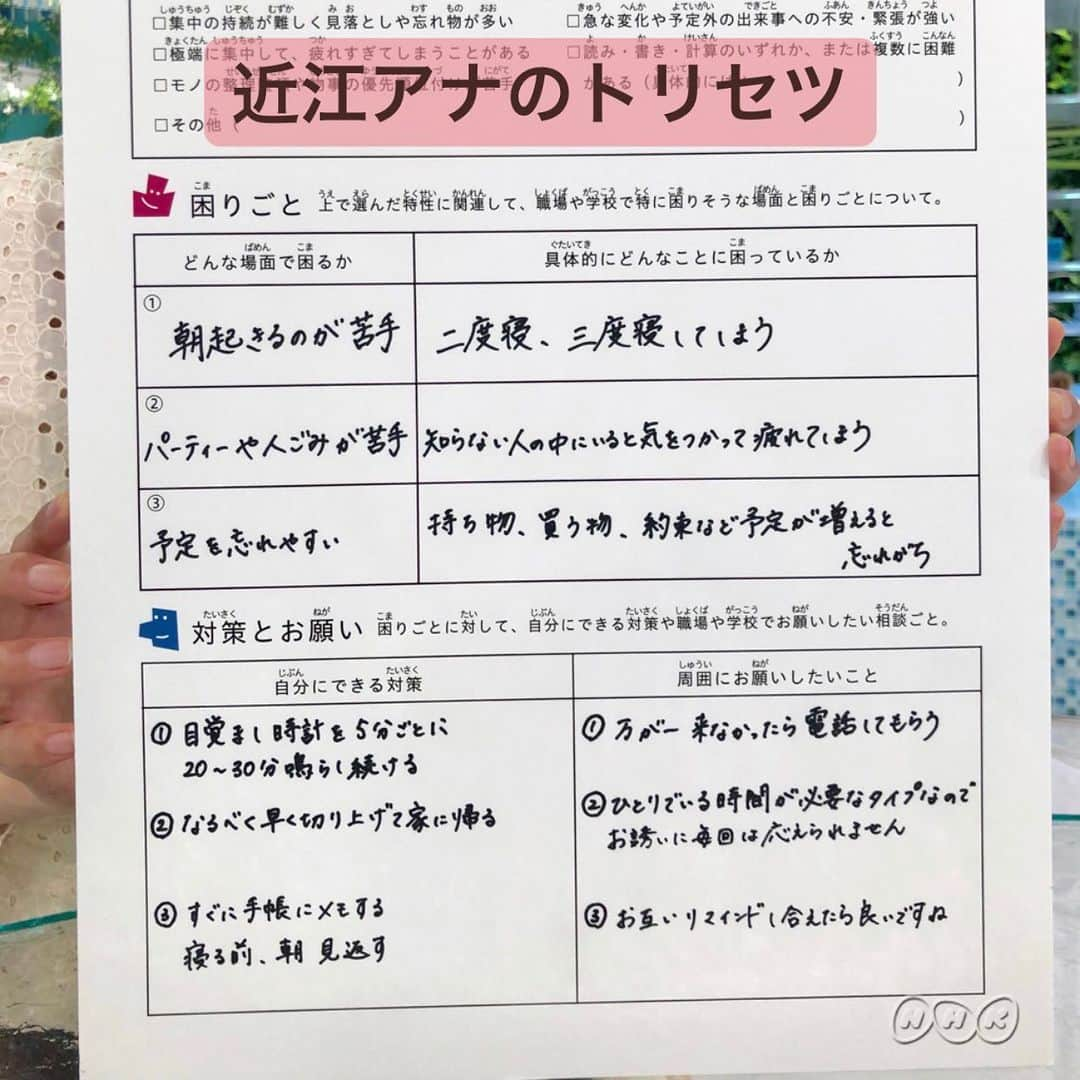 □集中の持続が難しく見落としや忘れ物が多い
□急な変化や予定外の出来事への不安・緊張が強い
□極端に集中して、疲れすぎてしまうことがある
□読み・書き・計算のいずれか、または複数に困難
□モノの
がある（具体的には
）
□その他（
）
近江アナのトリセツ
困りごと 上で選んだ特性に関連して、職場や学校で特に困りそうな場面と困りごとについて。
どんな場面で困るか
具体的にどんなことに困っているか
① 朝起きるのが苦手
二度寝、三度寝してしまう
② パーティーや人ごみが苦手
知らない人の中にいると気をつかって疲れてしまう
③ 予定を忘れやすい
持ち物、買う物、約束など予定が増えると
忘れがち
対策とお願い 困りごとに対して、自分にできる対策や職場や学校でお願いしたい相談ごと。
自分にできる対策
周囲にお願いしたいこと
① 目覚まし時計を5分ごとに
20～30分鳴らし続ける
① 万が一来なかったら電話してもらう
② なるべく早く切り上げて家に帰る
② ひとりでいる時間が必要なタイプなので
お誘いに毎回は応えられません
③ すぐに手帳にメモする
寝る前、朝見返す
③ お互いリマインドし合えたら良いですね
NHK